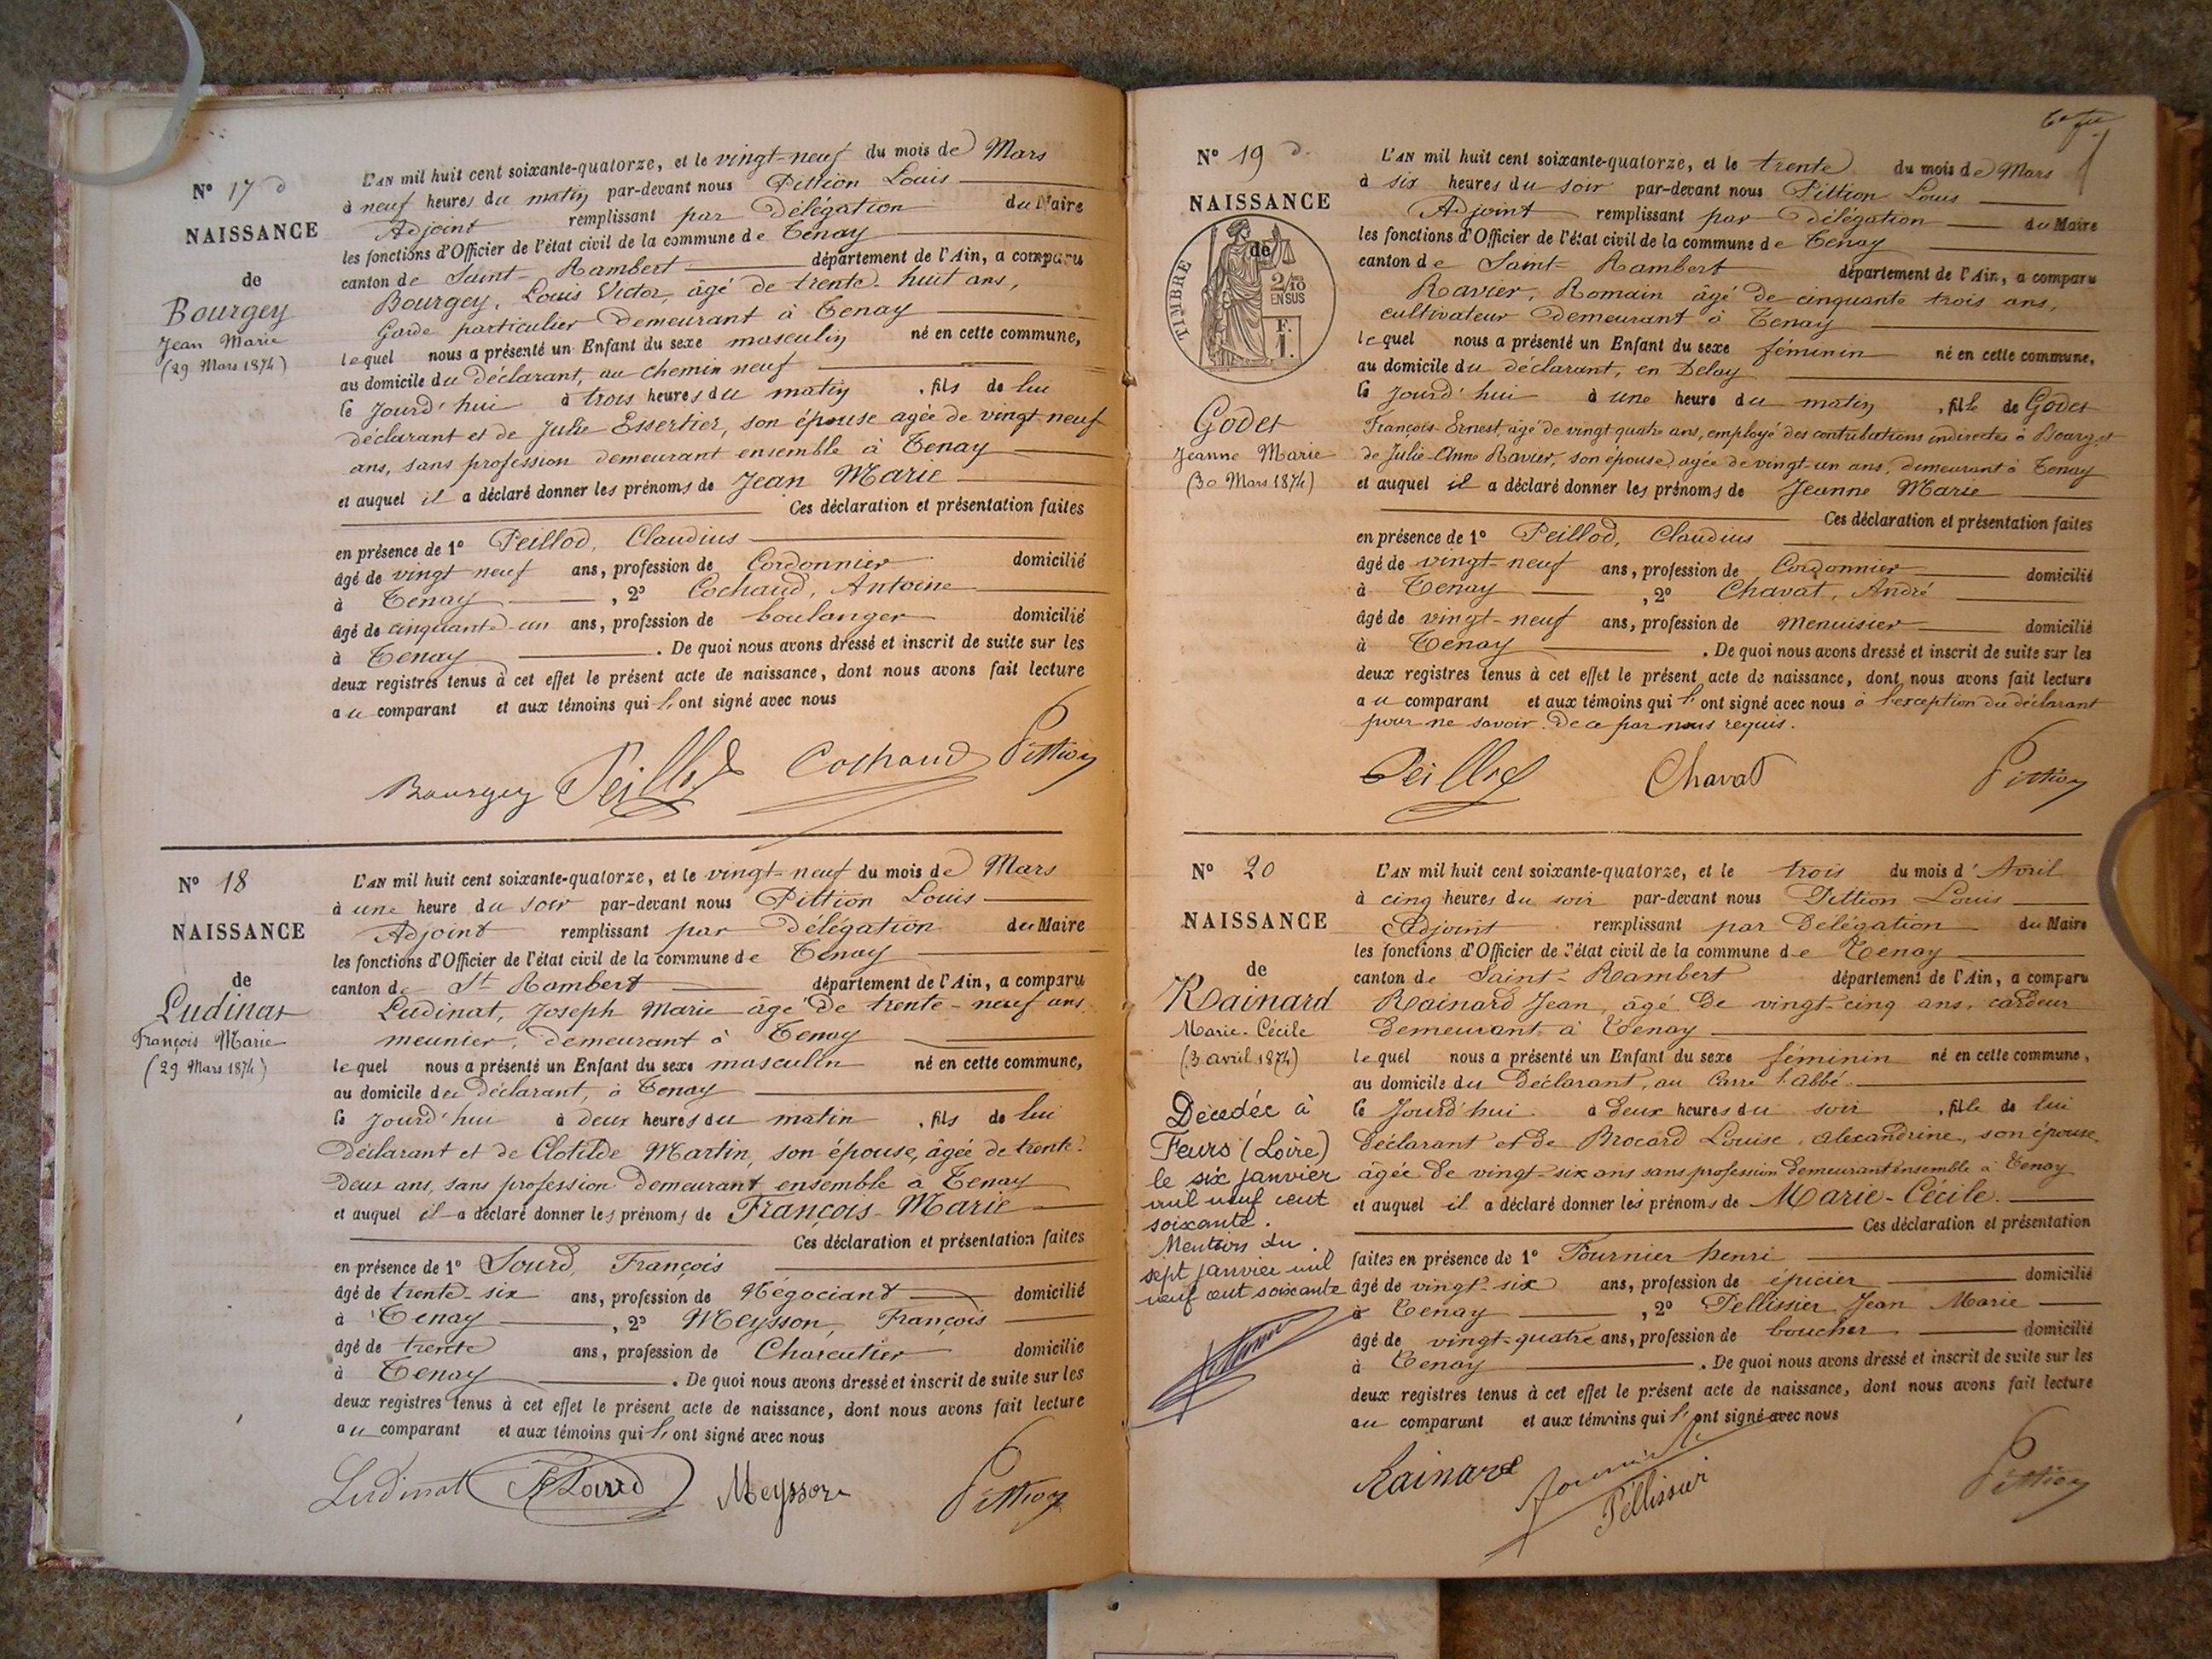 N° 17
NAISSANCE
de
Bourgey
Jean Marie
(29 Mars 1874)
L'AN mil huit cent soixante-quatorze, et le vingt-neuf du mois de Mars
à neuf heures du matin par-devant nous Pittion Louis
Adjoint remplissant par Délégation du Maire
les fonctions d'Officier de l'état civil de la commune de Tenay
canton de Saint-Rambert département de l'Ain, a comparu
Bourgey, Louis Victor, âgé de trente-huit ans,
Garde particulier Demeurant à Tenay
lequel nous a présenté un Enfant du sexe masculin né en cette commune,
au domicile du Déclarant, au chemin neuf
le Jourd'hui à trois heures du matin, fils de lui
déclarant et de Julie Essertier, son épouse agée de vingt-neuf
ans, sans profession demeurant ensemble à Tenay
et auquel il a déclaré donner les prénoms de Jean Marie
Ces déclaration et présentation faites
en présence de 1° Peillod, Claudius
âgé de vingt neuf ans, profession de Cordonnier domicilié
à Tenay, 2° Cochaud, Antoine
âgé de cinquante-un ans, profession de boulanger domicilié
à Tenay. De quoi nous avons dressé et inscrit de suite sur les
deux registres tenus à cet effet le présent acte de naissance, dont nous avons fait lecture
au comparant et aux témoins qui l'ont signé avec nous
Bourgey Peillod Cochaud Pittion
N° 18
NAISSANCE
de
Ludinat
François Marie
(29 Mars 1874)
L'AN mil huit cent soixante-quatorze, et le vingt-neuf du mois de Mars
à une heure du soir par-devant nous Pittion Louis
Adjoint remplissant par délégation du Maire
les fonctions d'Officier de l'état civil de la commune de Tenay
canton de St Rambert département de l'Ain, a comparu
Ludinat, Joseph Marie âgé de trente-neuf ans
meunier, demeurant à Tenay
lequel nous a présenté un Enfant du sexe masculin né en cette commune,
au domicile du déclarant, à Tenay
le Jourd'hui à deux heures du matin, fils de lui
Déclarant et de Clotilde Martin, son épouse, âgée de trente-
deux ans, sans profession demeurant ensemble à Tenay
et auquel il a déclaré donner les prénoms de François-Marie
Ces déclaration et présentation faites
en présence de 1° Sourd, François
âgé de trente-six ans, profession de Négociant domicilié
à Tenay, 2° Meysson, François
âgé de trente ans, profession de Charcutier domicilié
à Tenay. De quoi nous avons dressé et inscrit de suite sur les
deux registres tenus à cet effet le présent acte de naissance, dont nous avons fait lecture
au comparant et aux témoins qui l'ont signé avec nous
Ludinat Sourd Meysson Pittion
N° 19
NAISSANCE
de
TIMBRE
2/10
EN SUS
F.
1.
Godet
Jeanne Marie
(30 Mars 1874)
L'AN mil huit cent soixante-quatorze, et le trente du mois de Mars
à six heures du soir par-devant nous Pittion Louis
Adjoint remplissant par délégation du Maire
les fonctions d'Officier de l'état civil de la commune de Tenay
canton de Saint-Rambert département de l'Ain, a comparu
Ravier, Romain âgé de cinquante trois ans,
cultivateur Demeurant à Tenay
lequel nous a présenté un Enfant du sexe féminin né en cette commune,
au domicile du déclarant, en Delay
le Jourd'hui à une heure du matin, fille de Godet
François-Ernest, âgé de vingt quatre ans, employé des contributions indirectes à Bourg, et
de Julie-Anne Ravier, son épouse, agée de vingt-un ans, demeurant à Tenay
et auquel il a déclaré donner les prénoms de Jeanne Marie
Ces déclaration et présentation faites
en présence de 1° Peillod, Claudius
âgé de vingt-neuf ans, profession de Cordonnier domicilié
à Tenay, 2° Chavat, André
âgé de vingt-neuf ans, profession de Menuisier domicilié
à Tenay. De quoi nous avons dressé et inscrit de suite sur les
deux registres tenus à cet effet le présent acte de naissance, dont nous avons fait lecture
au comparant et aux témoins qui l'ont signé avec nous à l'exception du déclarant
pour ne savoir. De ce par nous requis.
Peillod Chavat Pittion
N° 20
NAISSANCE
de
Rainard
Marie-Cécile
(3 avril 1874)
Décédée à
Feurs (Loire)
le six janvier
mil neuf cent
soixante.
Mention du
sept janvier mil
neuf cent soixante
L'AN mil huit cent soixante-quatorze, et le trois du mois d'Avril
à cinq heures du soir par-devant nous Pittion Louis
Adjoint remplissant par Délégation du Maire
les fonctions d'Officier de l'état civil de la commune de Tenay
canton de Saint-Rambert département de l'Ain, a comparu
Rainard Jean, âgé de vingt-cinq ans, cardeur
demeurant à Tenay
lequel nous a présenté un Enfant du sexe féminin né en cette commune,
au domicile du Déclarant, au Carré l'Abbé
le Jourd'hui à deux heures du soir, fille de lui
Déclarant et de Brocard Louise Alexandrine, son épouse,
âgée de vingt-six ans sans profession demeurant ensemble à Tenay
et auquel il a déclaré donner les prénoms de Marie-Cécile.
Ces déclaration et présentation
faites en présence de 1° Fournier henri
âgé de vingt-six ans, profession de épicier domicilié
à Tenay, 2° Pellissier Jean Marie
âgé de vingt-quatre ans, profession de boucher domicilié
à Tenay. De quoi nous avons dressé et inscrit de suite sur les
deux registres tenus à cet effet le présent acte de naissance, dont nous avons fait lecture
au comparant et aux témoins qui l'ont signé avec nous
Rainard Fournier Pellissier Pittion